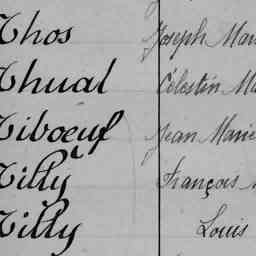 Thos Joseph Mar
Thual Célestin Ma
Tiboeuf Jean Marie
Tilly François
Tilly Louis